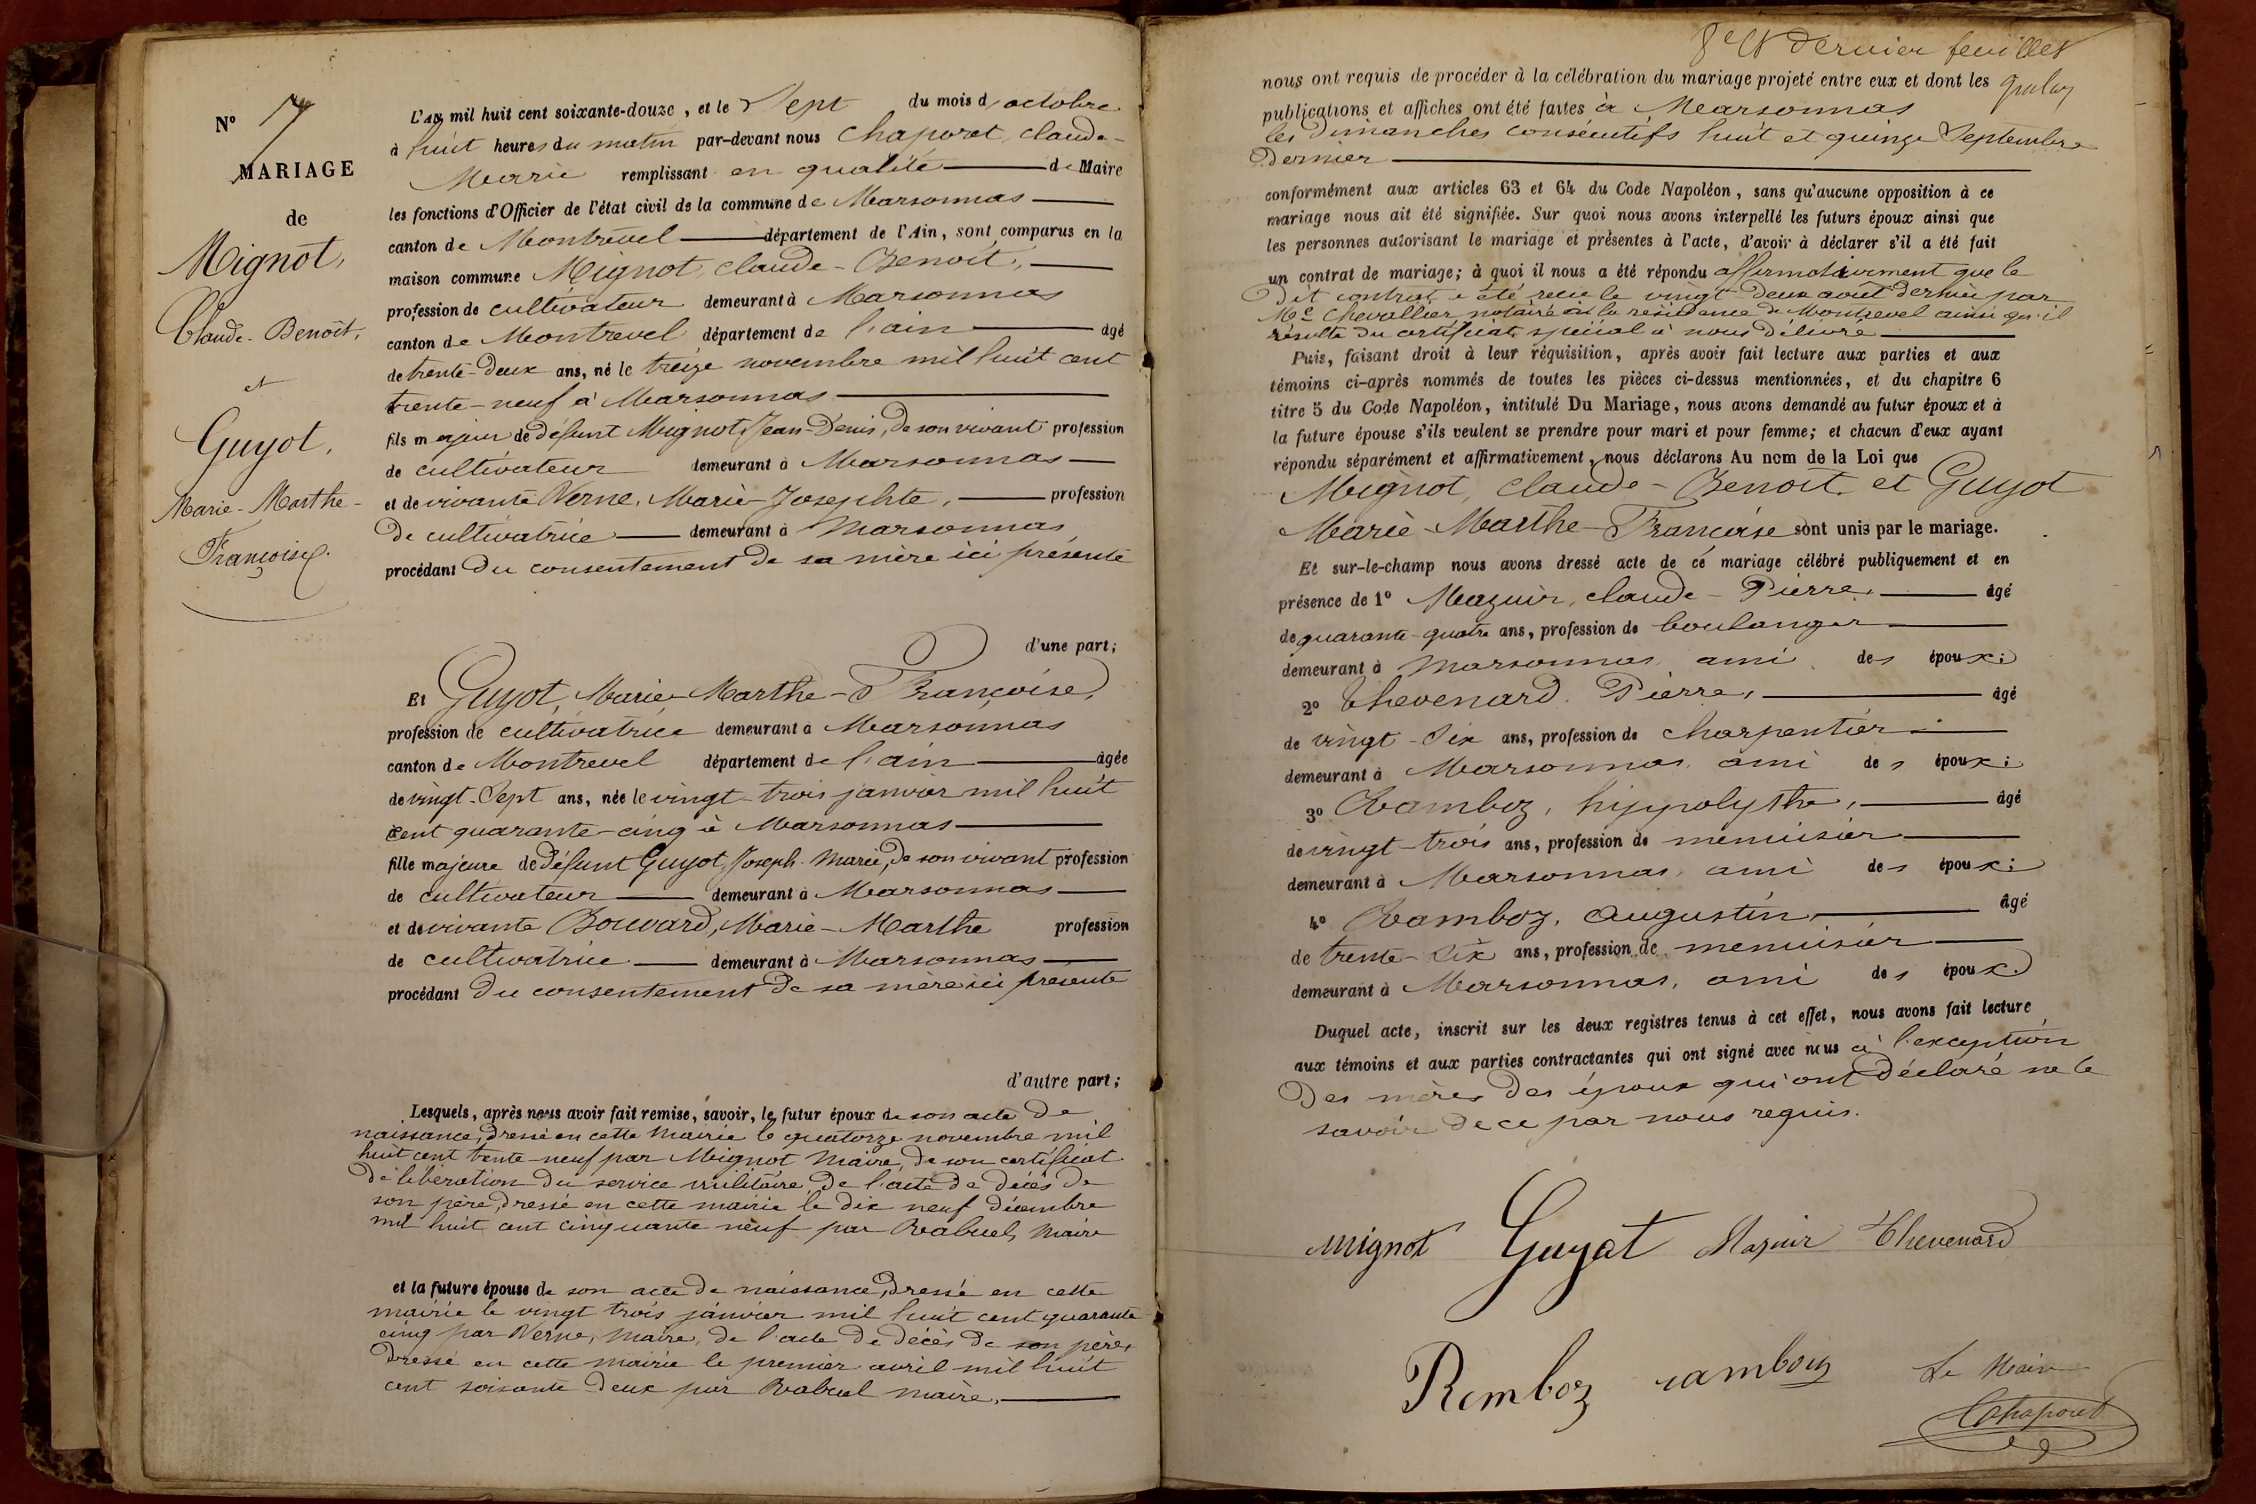 N° 7
MARIAGE
de
Mignot,
Claude-Benoît,
et
Guyot,
Marie-Marthe-
Françoise.
L'An mil huit cent soixante-douze, et le Sept du mois d'octobre
à huit heures du matin par-devant nous Chaporet, Claude-
Marie remplissant en qualité de Maire
les fonctions d'Officier de l'état civil de la commune de Marsonnas
canton de Montrevel département de l'Ain, sont comparus en la
maison commune Mignot, Claude-Benoît,
profession de cultivateur demeurant à Marsonnas
canton de Montrevel département de l'ain âgé
de trente-deux ans, né le treize novembre mil huit cent
trente-neuf à Marsonnas
fils majeur de défunt Mignot, Jean-Denis, de son vivant profession
de cultivateur demeurant à Marsonnas
et de vivante Verne, Marie-Josephte, profession
de cultivatrice demeurant à Marsonnas
procédant du consentement de sa mère ici présente
d'une part;
Et Guyot, Marie-Marthe-Françoise,
profession de cultivatrice demeurant à Marsonnas
canton de Montrevel département de l'ain âgée
de vingt-sept ans, née le vingt-trois janvier mil huit
cent quarante-cinq à Marsonnas
fille majeure de défunt Guyot, Joseph-Marie, de son vivant profession
de cultivateur demeurant à Marsonnas
et de vivante Bouvard, Marie-Marthe profession
de cultivatrice demeurant à Marsonnas
procédant du consentement de sa mère ici présente
d'autre part;
Lesquels, après nous avoir fait remise, savoir, le futur époux de son acte de
naissance, dressé en cette Mairie le quatorze novembre mil
huit cent trente-neuf par Mignot Maire, de son certificat
de libération du service militaire, de l'acte de décès de
son père, dressé en cette mairie le dix neuf décembre
mil huit cent cinquante neuf par Rabuel, Maire
et la future épouse de son acte de naissance, dressé en cette
mairie le vingt trois janvier mil huit cent quarante
cinq par Verne, Maire, de l'acte de décès de son père,
dressé en cette mairie le premier avril mil huit
cent soixante deux par Rabuel maire.
8e et dernier feuillet
nous ont requis de procéder à la célébration du mariage projeté entre eux et dont les
publications et affiches ont été faites à Marsonnas
les Dimanches consécutifs huit et quinze Septembre
dernier
conformément aux articles 63 et 64 du Code Napoléon, sans qu'aucune opposition à ce
mariage nous ait été signifiée. Sur quoi nous avons interpellé les futurs époux ainsi que
les personnes autorisant le mariage et présentes à l'acte, d'avoir à déclarer s'il a été fait
un contrat de mariage; à quoi il nous a été répondu affirmativement que le
dit contrat a été reçu le vingt deux août dernier par
Me Chevallier notaire à la résidence de Montrevel ainsi qu'il
résulte du certificat spécial à nous délivré
Puis, faisant droit à leur réquisition, après avoir fait lecture aux parties et aux
témoins ci-après nommés de toutes les pièces ci-dessus mentionnées, et du chapitre 6
titre 5 du Code Napoléon, intitulé Du Mariage, nous avons demandé au futur époux et à
la future épouse s'ils veulent se prendre pour mari et pour femme; et chacun d'eux ayant
répondu séparément et affirmativement, nous déclarons Au nom de la Loi que
Mignot, Claude-Benoît, et Guyot
Marie-Marthe-Francoise sont unis par le mariage.
Et sur-le-champ nous avons dressé acte de ce mariage célébré publiquement et en
présence de 1° Mazuir, Claude-Pierre, âgé
de quarante-quatre ans, profession de boulanger
demeurant à Marsonnas, ami des époux;
2° Thevenard Pierre, âgé
de vingt-six ans, profession de charpentier
demeurant à Marsonnas, ami des époux;
3° Ramboz, hippolythe, âgé
de vingt-trois ans, profession de menuisier
demeurant à Marsonnas, ami des époux;
4° Ramboz, Augustin, âgé
de trente-six ans, profession de menuisier
demeurant à Marsonnas, ami des époux.
Duquel acte, inscrit sur les deux registres tenus à cet effet, nous avons fait lecture
aux témoins et aux parties contractantes qui ont signé avec nous à l'exception
des mères des époux qui ont déclaré ne le
savoir de ce par nous requis.
Mignot Guyot Mazuir Thevenard
Ramboz ramboz Le Maire
Chaporet